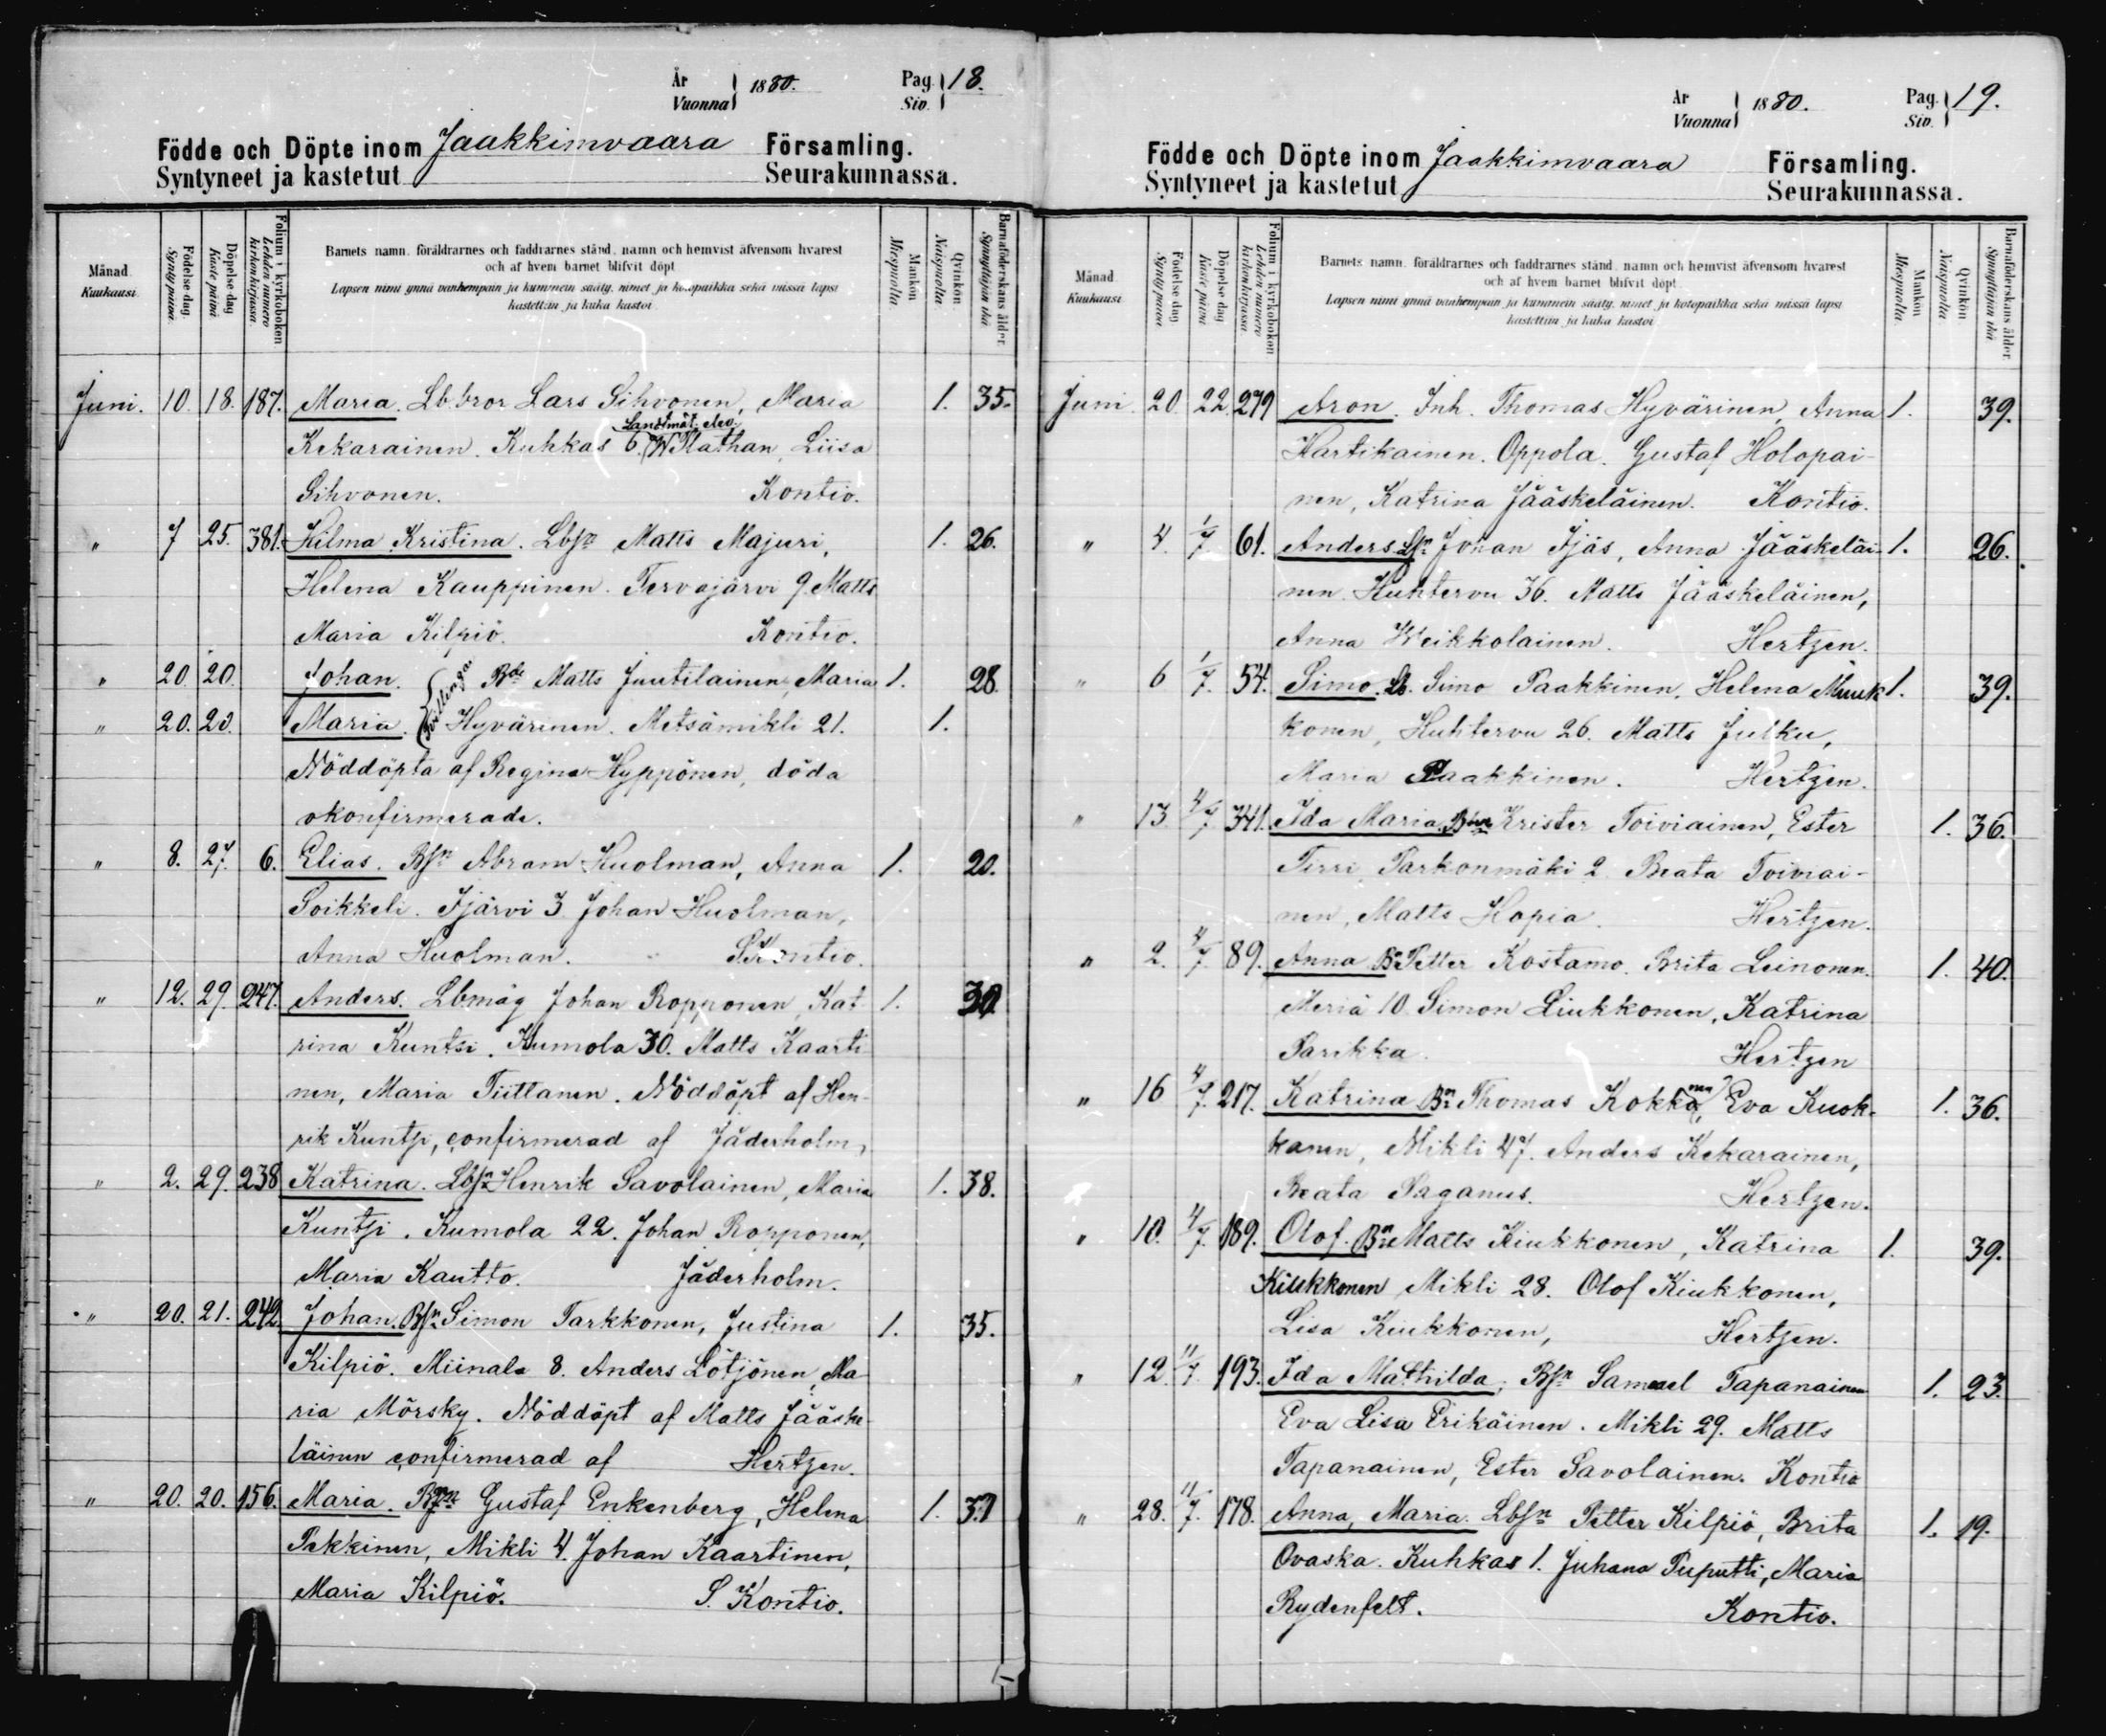 År
Vuonna 1880. Pag. Siv. 18.
Födde och Döpte inom Jaakkimvaara Församling.
Syntyneet ja kastetut Seurakunnassa.
Månad. Kuukausi.
Födelse dag. Synty päivä.
Döpelse dag. Kaste päivä
Folium i kyrkoboken Lehden numero kirkonkirjassa.
Barnets namn, föräldrarnes och faddrarnes stånd, namn och hemvist äfvensom hvarest
och af hvem barnet blifvit döpt
Lapsen nimi ynnä vanhempain ja kummein sääty, nimet ja kotopaikka sekä missä lapsi
kastettiin ja kuka kastoi.
Mankön Miespuolta.
Qvinkön Naispuolta.
Barnaföderskans ålder. Synnyttäjän ikä
Juni. 10. 18. 187. Maria. Lb.bror Lars Sihvonen, Maria 1. 35.
Landtmät. elev.
Kekarainen. Kuhkas 6. W Nathan, Liisa
Sihvonen. Kontio.
" 7 25. 381. Hilma Kristina. Lbsn Matts Majuri, 1. 26.
Helena Kauppinen. Tervajärvi 9. Matts
Maria Kilpiö. Kontio.
" 20. 20. Johan. Tvillingar Bde Matts Juutilainen, Maria 1. 28.
" 20. 20. Maria. Hyvärinen. Metsämikli 21. 1.
Nöddöpta af Regina Hyppönen, döda
okonfirmerade.
" 8. 27. 6. Elias. Bsn Abram Huolman, Anna 1. 20.
Soikkeli. Ijärvi 3. Johan Huolman,
Anna Huolman. S Kontio.
" 12. 29. 247. Anders. Lbmåg Johan Ropponen, Kat- 1. 30.
rina Kuntsi. Kumola 30. Matts Kaarti-
nen, Maria Tiittanen. Nöddöpt af Hen-
rik Kuntsi, confirmerad af Jäderholm,
" 2. 29. 238 Katrina. Lbsn Henrik Savolainen, Maria 1. 38.
Kuntsi. Kumola 22. Johan Ropponen,
Maria Kautto. Jäderholm.
" 20. 21. 242. Johan. Bsn Simon Tarkkonen, Justina 1. 35.
Kilpiö. Miinala 8. Anders Lötjönen, Ma-
ria Mörsky. Nöddöpt af Matts Jääske-
läinen confirmerad af Hertzen.
" 20. 20. 156. Maria. Gustaf Enkenberg, Helena 1. 37
Pekkinen, Mikli 4. Johan Kaartinen,
Maria Kilpiö. S. Kontio.
År
Vuonna 1880. Pag. Siv. 19.
Födde och Döpte inom Jaakkimvaara Församling.
Syntyneet ja kastetut Seurakunnassa.
Månad Kuukausi
Födelse dag Synty päivä
Döpelse dag Kaste päivä
Folium i kyrkoboken Lehden numero kirkonkirjassa.
Barnets namn, föräldrarnes och faddrarnes stånd, namn och hemvist äfvensom hvarest
och af hvem barnet blifvit döpt
Lapsen nimi ynnä vanhempain ja kummein sääty, nimet ja kotopaikka sekä missä lapsi
kastettiin ja kuka kastoi
Mankön Miespuolta.
Qvinkön Naispuolta.
Barnaföderskans ålder. Synnyttäjän ikä
Juni 20 22. 279 Aron. Inh. Thomas Hyvärinen, Anna 1. 39.
Hartikainen. Oppola. Gustaf Holopai-
nen, Katrina Jääskeläinen. Kontio.
" 4. 1/7 61. Anders Lsn Johan Ijäs, Anna Jääskeläi- 1. 26.
nen. Huhtervu 36. Matts Jääskeläinen,
Anna Weikkolainen. Hertzen.
" 6 1/7. 54. Simo. Lb. Simo Paakkinen, Helena Muuk- 1. 39.
konen, Huhtervu 26. Matts Julku,
Maria Paakkinen. Hertzen.
" 13 4/7 341. Ida Maria. Krister Toiviainen, Ester 1. 36.
Tirri, Parkonmäki 2. Beata Toiviai-
nen, Matts Hopia. Hertzen.
" 2. 4/7. 89. Anna Bn Petter Kostamo. Brita Leinonen. 1. 40.
Meriä 10. Simon Liukkonen, Katrina
Parikka. Hertzen
" 16 4/7. 217. Katrina Bn Thomas Kokkonen, Eva Kuok- 1. 36.
kanen, Mikli 47. Anders Kekarainen,
Beata Paganus. Hertzen.
" 10. 4/7. 189. Olof. Bn Matts Kiukkonen, Katrina 1. 39.
Kiukkonen Mikli 28. Olof Kiukkonen,
Lisa Kiukkonen, Hertzen.
" 12. 11/7. 193. Ida Mathilda, Bsn Samuel Tapanainen 1. 23.
Eva Lisa Erikäinen. Mikli 29. Matts
Tapanainen, Ester Savolainen. Kontio
" 28. 11/7. 178. Anna, Maria. Lbsn Petter Kilpiö, Brita 1. 19.
Ovaska. Kuhkas 1. Juhana Puputti, Maria
Rydenfelt. Kontio.